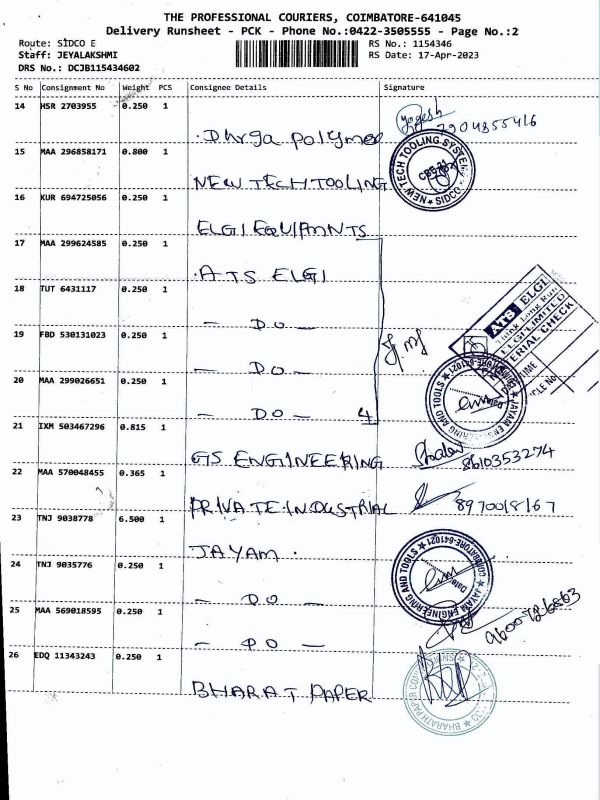 THE PROFESSIONAL COURIERS, COIMBATORE-641045
Delivery Runsheet - PCK - Phone No.:0422-3505555 - Page No.:2
Route: SIDCO E
Staff: JEYALAKSHMI
DRS No.: DCJB115434602
RS No.: 1154346
RS Date: 17-Apr-2023
S No Consignment No Weight PCS Consignee Details Signature
14 MSR 2703955 0.250 1 Dhrga polymer Yogesh 7904855416
15 MAA 296858171 0.800 1 NEW TECH TOOLING
NEW TECH TOOLING SYSTEM SIDCO
16 KUR 694725056 0.250 1 ELGI EQUIPMNTS
17 MAA 299624585 0.250 1 ATS ELGI
18 TUT 6431117 0.250 1 — DO —
19 FBD 530131023 0.250 1 — DO —
20 MAA 299026651 0.250 1 — DO — 4
ATS ELGI
21 IXM 503467296 0.815 1 GS ENGINEERING 8610353274
JAYAM ENGINEERING AND TOOLS COIMBATORE-641021
22 MAA 570048455 0.365 1 PRIVATE INDUSTRIAL 8970018167
23 TNJ 9038778 6.500 1 JAYAM
24 TNJ 9035776 0.250 1 — DO —
JAYAM ENGINEERING AND TOOLS COIMBATORE-641021
25 MAA 569018595 0.250 1 — DO —
26 EDQ 11343243 0.250 1 BHARAT PAPER